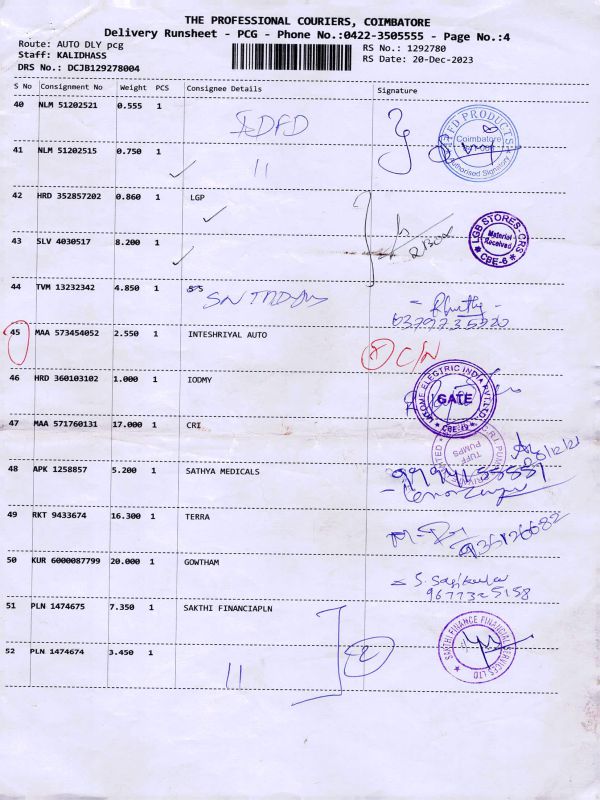 THE PROFESSIONAL COURIERS, COIMBATORE
Delivery Runsheet - PCG - Phone No.:0422-3505555 - Page No.:4
Route: AUTO DLY pcg
RS No.: 1292780
Staff: KALIDHASS
RS Date: 20-Dec-2023
DRS No.: DCJB129278004
S No Consignment No Weight PCS Consignee Details Signature
40 NLM 51202521 0.555 1
Coimbatore
Authorised Signatory
41 NLM 51202515 0.750 1 11
42 HRD 352857202 0.860 1 LGP
LGB STORES-CRS
Material
Received
CBE-6
43 SLV 4030517 8.200 1
44 TVM 13232342 4.850 1
45 MAA 573454052 2.550 1 INTESHRIYAL AUTO
C/N
46 HRD 360103102 1.000 1 IODMY
ELECTRIC INDIA PVT.LTD
GATE
CBE-19
47 MAA 571760131 17.000 1 CRI
TUFF
PUMPS
48 APK 1258857 5.200 1 SATHYA MEDICALS
49 RKT 9433674 16.300 1 TERRA
50 KUR 6000087799 20.000 1 GOWTHAM
9677325158
51 PLN 1474675 7.350 1 SAKTHI FINANCIAPLN
SAKTHI FINANCE FINANCIAL SERVICES LTD
52 PLN 1474674 3.450 1 11
2